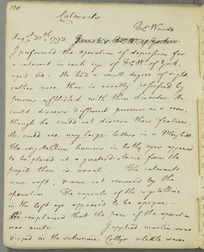 150
Cataracts
W. Wands
Aug. 30th 1793
I performed the operation of depression for
a cataract in each eye of of York,
aged 60. He had a small degree of sight
rather more than is usually possessed by
persons afflicted with this disorder. He
could discover different persons in a room,
though he could not discern their features.
He could see very large letters in a Play bill.
The crystalline humour in both eyes appeared
to be placed at a greater distance from the
pupil than is usual. The cataracts
were soft, & was not removed by the
operation. The capsula of the crystalline
in the left eye appeared to be opaque.
He complained that the pain of the operation
was acute. I applied muslin wove
dipped in the saturnine